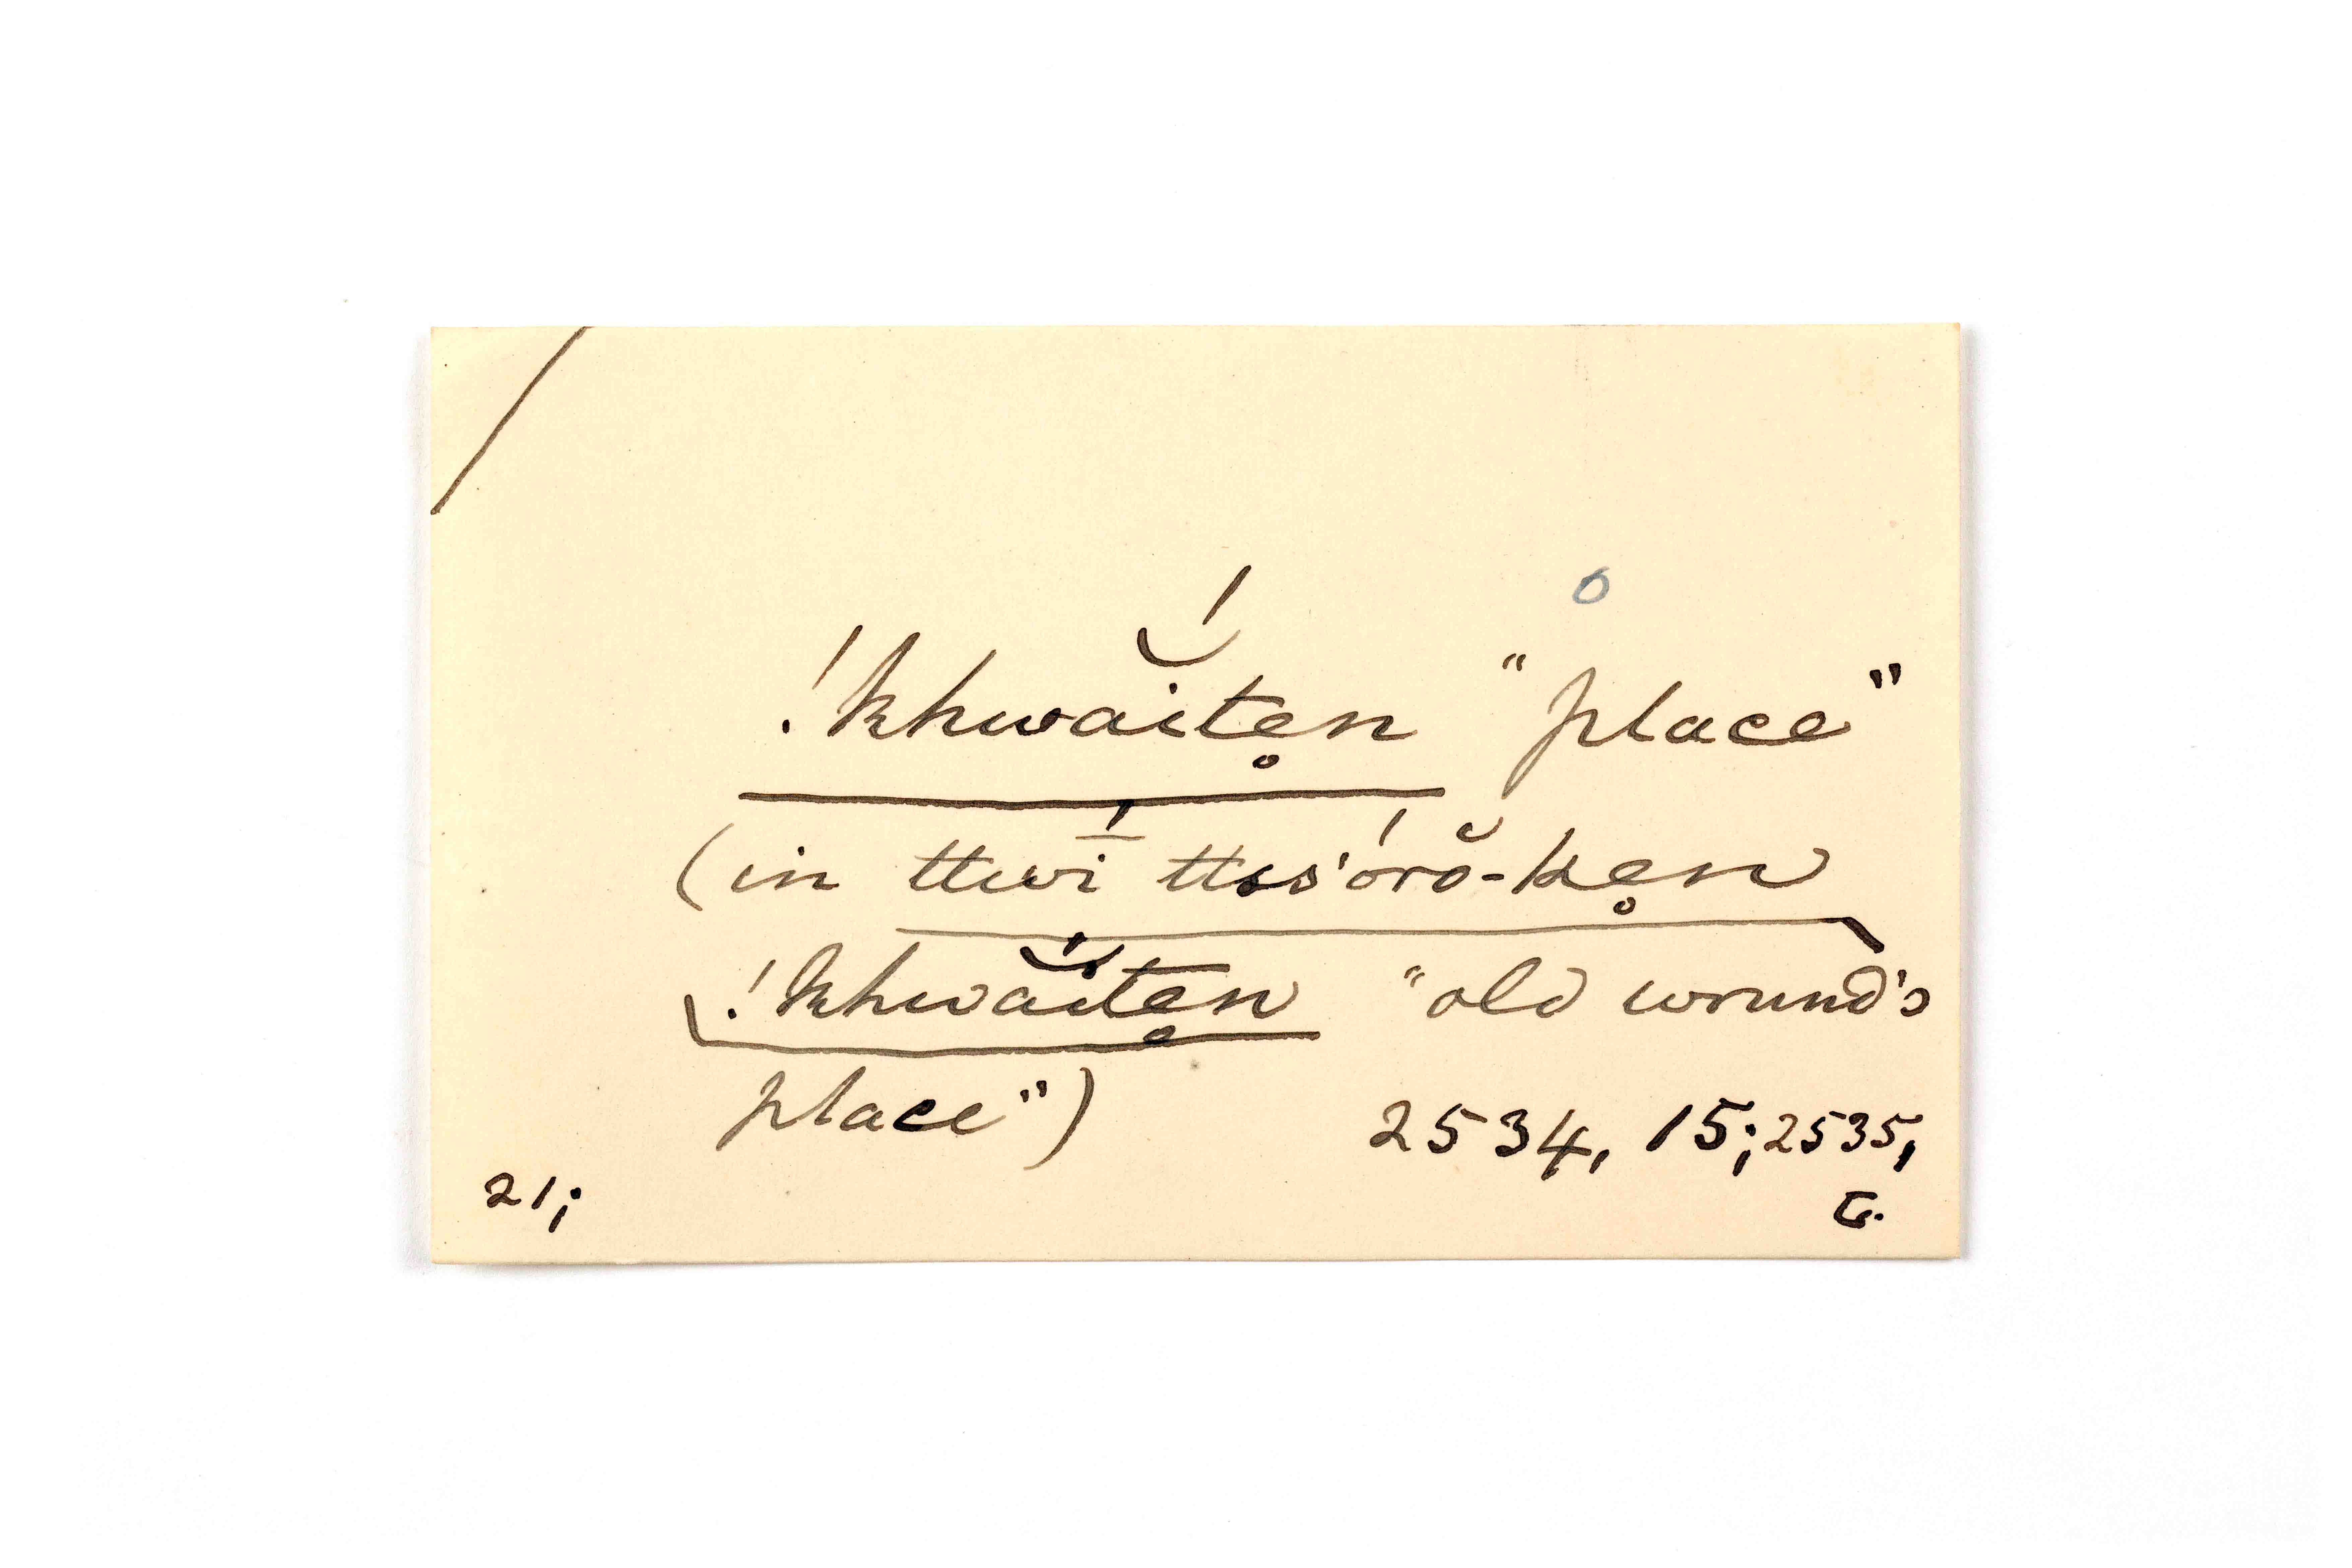 !khwăíten̥ "place"
(in ttwī́ ttss'órŏ-ken̥
!khwăíten̥ "old wound's
place") 2534, 15; 2535,
21; G.